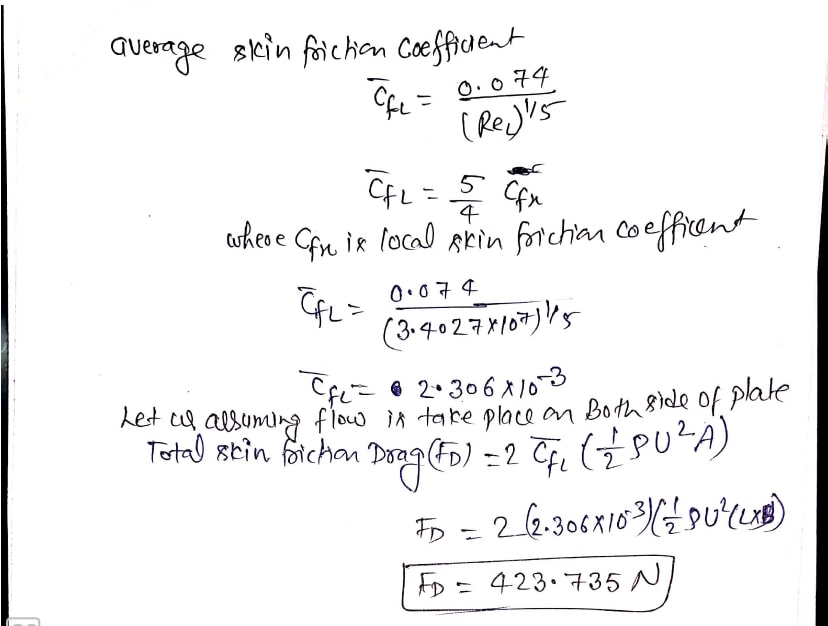 average skin friction Coefficient
C̄fL = 0.074 / (ReL)^1/5
C̄fL = 5/4 C̄fx
where Cfx is local skin friction coefficent
C̄fL = 0.074 / (3.4027×10^7)^1/5
C̄fL = 2.306×10^-3
Let us assuming flow is take place on Both side of plate
Total skin friction Drag (FD) = 2 C̄fL (1/2 ρU²A)
FD = 2 (2.306×10^-3)(1/2 ρU²(L×B)
FD = 423.735 N